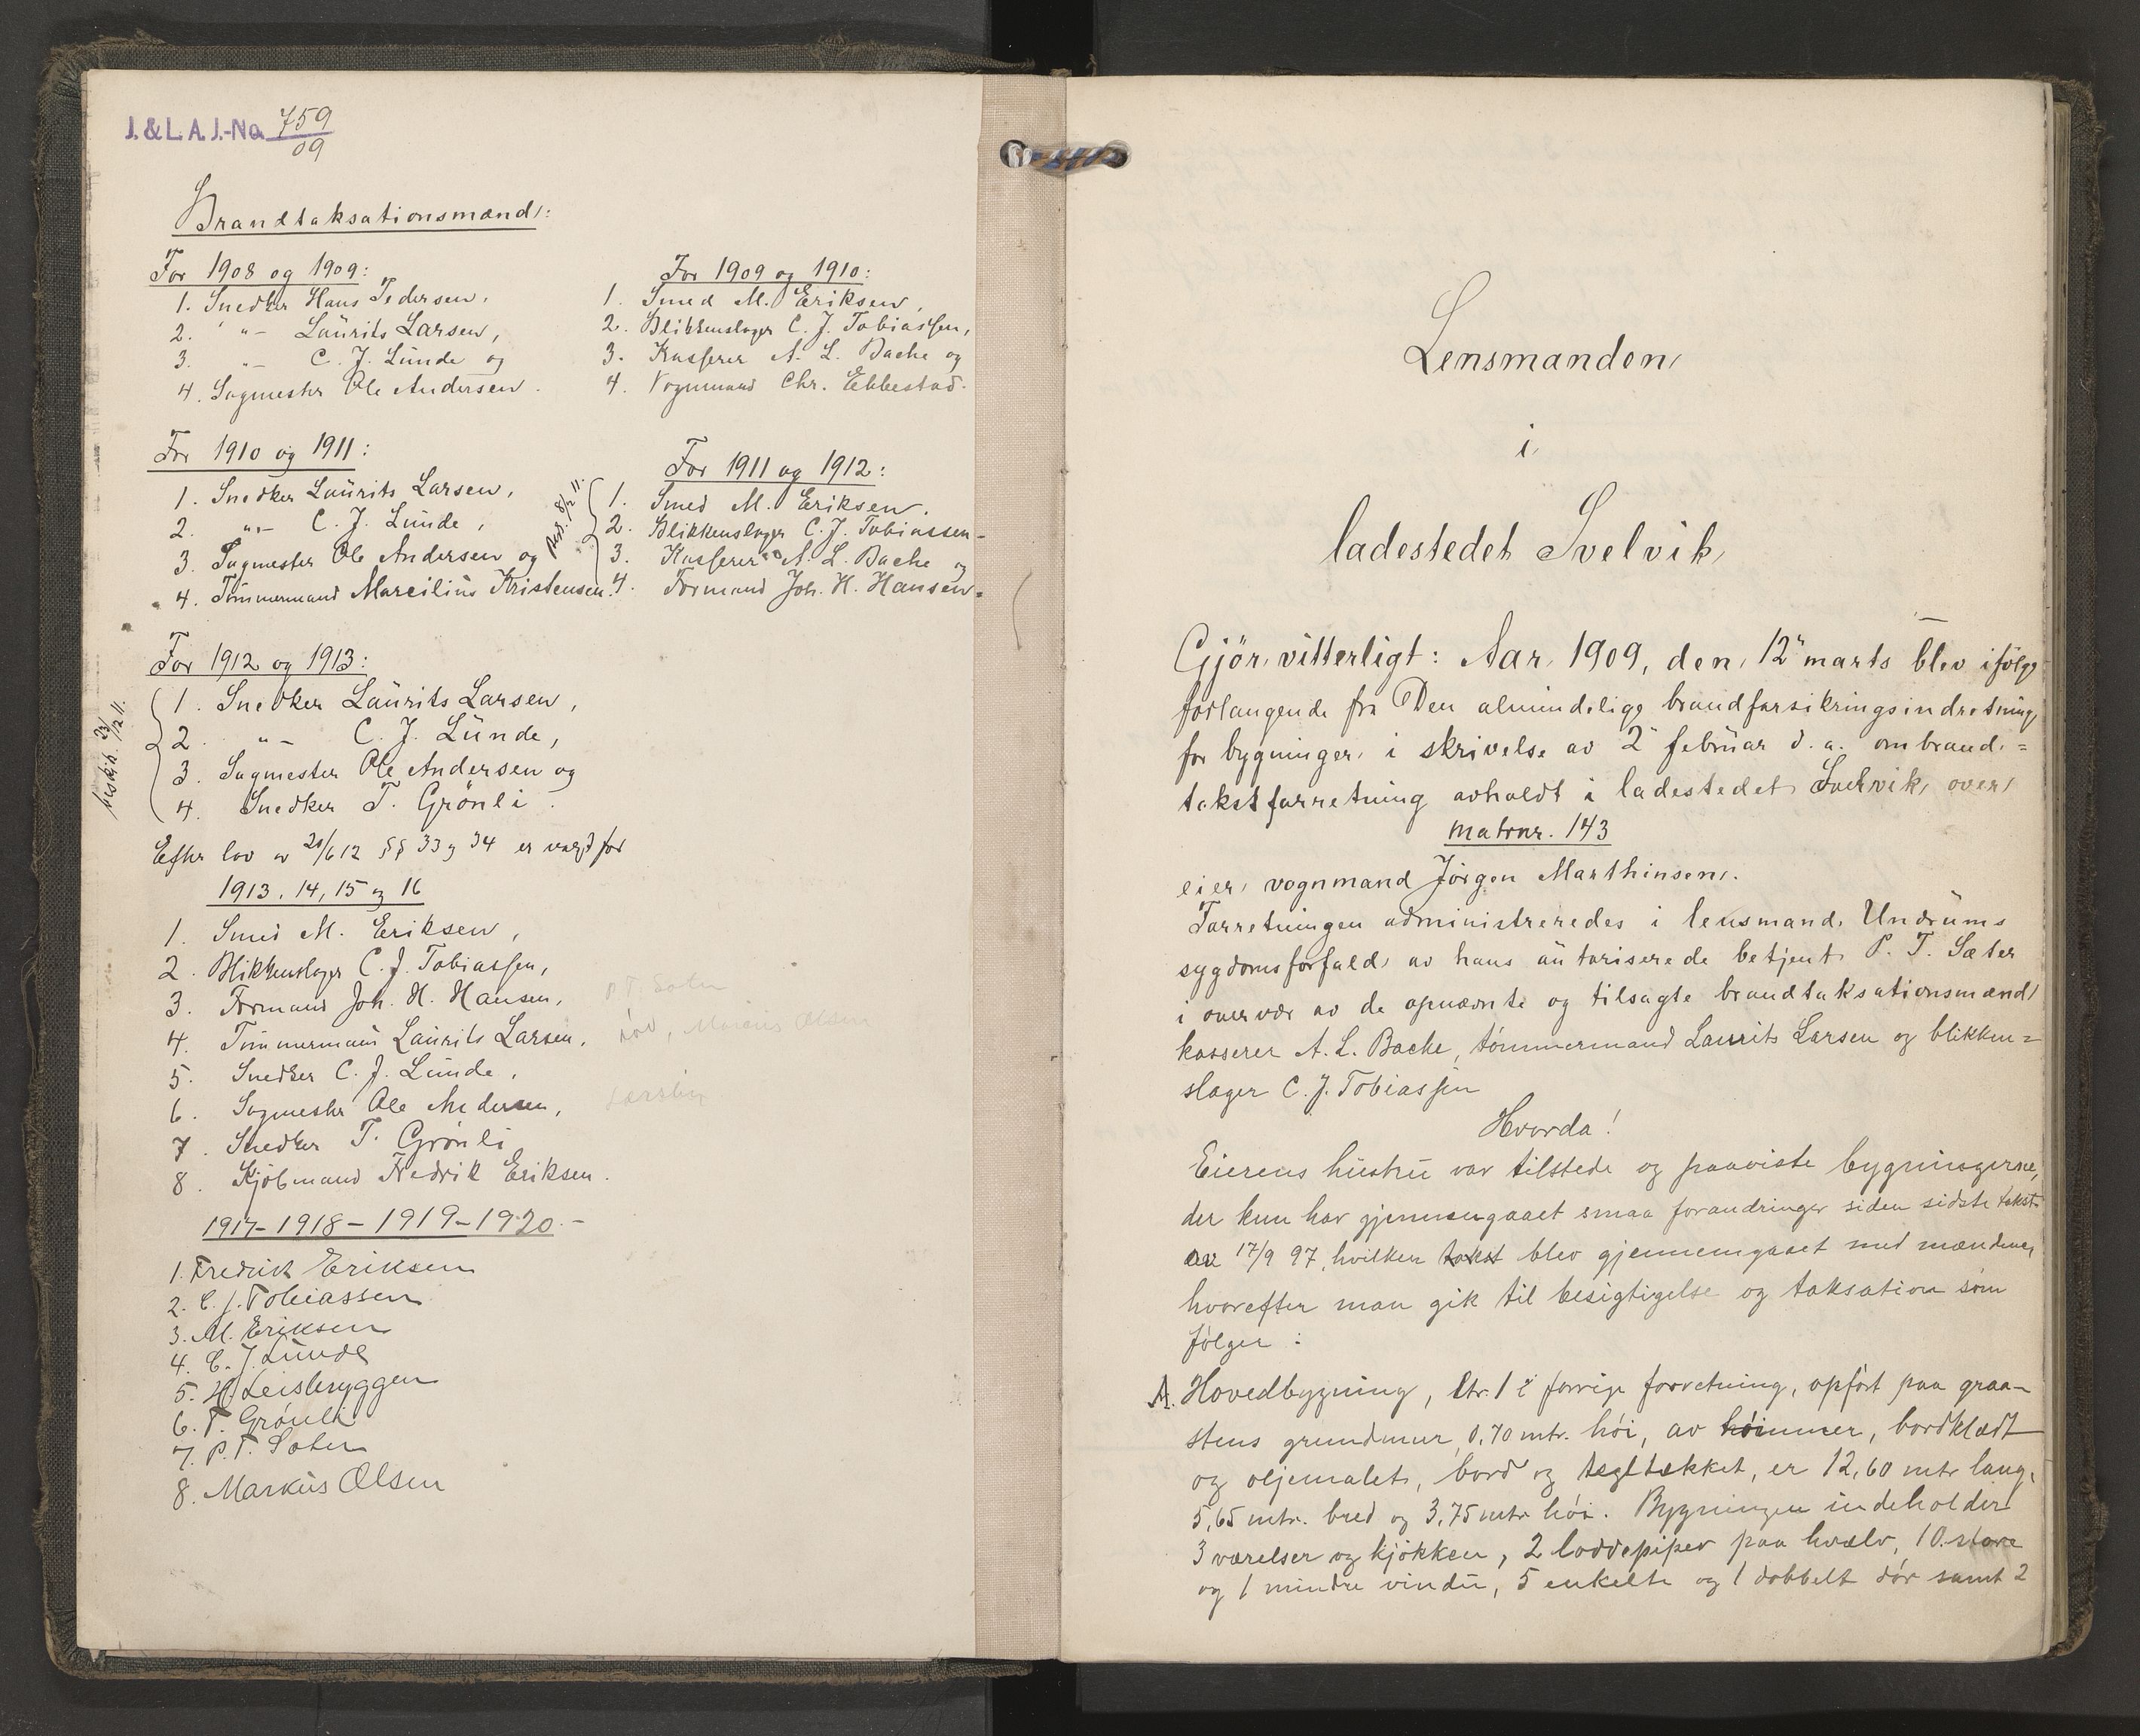 J. & L. A. J.-No. 759/09
Brandtaksationsmænd:
For 1908 og 1909:
1. Snedker Hans Pedersen,
2. -"- Laurits Larsen,
3. -"- C. J. Lunde og
4. Sagmester Ole Andersen.
For 1909 og 1910:
1. Smed M. Eriksen,
2. Blikkenslager C. J. Tobiassen,
3. Kasserer A. L. Bache og
4. Vognmand Chr. Ebbestad.
For 1910 og 1911:
1. Snedker Laurits Larsen,
2. -"- C. J. Lunde,
3. Sagmester Ole Andersen og
4. Tømmermand Marcilius Kristensen.
For 1911 og 1912:
8/2 11.
1. Smed M. Eriksen,
2. Blikkenslager C. J. Tobiassen
3. Kasserer A. L. Bache og
4. Formand Joh. H. Hansen.
For 1912 og 1913:
beskik. 23/12 11.
1. Snedker Laurits Larsen,
2. -"- C. J. Lunde,
3. Sagmester Ole Andersen og
4. Snedker T. Grönli.
Efter lov av 21/6 12 §§ 33 og 34 er valgt for
1913, 14, 15 og 16
1. Smed M. Eriksen,
2. Blikkenslager C. J. Tobiassen,
3. Formand Joh. H. Hansen,
4. Tømmermand Laurits Larsen,
5. Snedker C. J. Lunde,
6. Sagmester Ole Andersen,
7. Snedker T. Grönli
8. Kjøbmand Fredrik Eriksen.
P. T. Sæter
Marcus Olsen
1917-1918-1919-1920.-
1. Fredrik Eriksen
2. C. J. Tobiassen
3. M. Eriksen
4. C. J. Lunde
5. H. Leisbryggen
6. T. Grönli
7. P. T. Sæter
8. Markus Olsen
Lensmanden
i
ladestedet Svelvik
Gjør vitterligt: Aar 1909, den 12" marts blev ifølge
forlangende fra Den almindelige brandforsikringsindretning
for bygninger i skrivelse av 2" februar d. a. ombrand=
takstforretning avholdt i ladestedet Svelvik over
matrnr. 143
eier vognmand Jørgen Marthinsen.
Forretningen administreredes i lensmand Undrums
sygdomsforfald av hans autoriserede betjent P. T. Sæter
i overvær av de opnævnte og tilsagte brandtaksationsmænd
kasserer A. L. Bache, tømmermand Laurits Larsen og blikken=
slager C. J. Tobiassen
Hvorda!
Eierens hustru var tilstede og paaviste bygningerne,
der kun har gjennemgaaet smaa forandringer siden sidste takst
av 17/9 97, hvilken takst blev gjennemgaaet med mændene,
hvorefter man gik til besigtigelse og taksation som
følger:
A. Hovedbygning, ltr. 1 i forrige forretning, opført paa graa-
stens grundmur 0,70 mtr. høi, av tømmer, bordklædt
og oljemalet, bord og tegltækket, er 12,60 mtr lang,
5,65 mtr. bred og 3,75 mtr høi. Bygningen indeholder
3 værelser og kjøkken, 2 loddepiper paa hvælv, 10 store
og 1 mindre vindu, 5 enkelte og 1 dobbelt dør samt 2